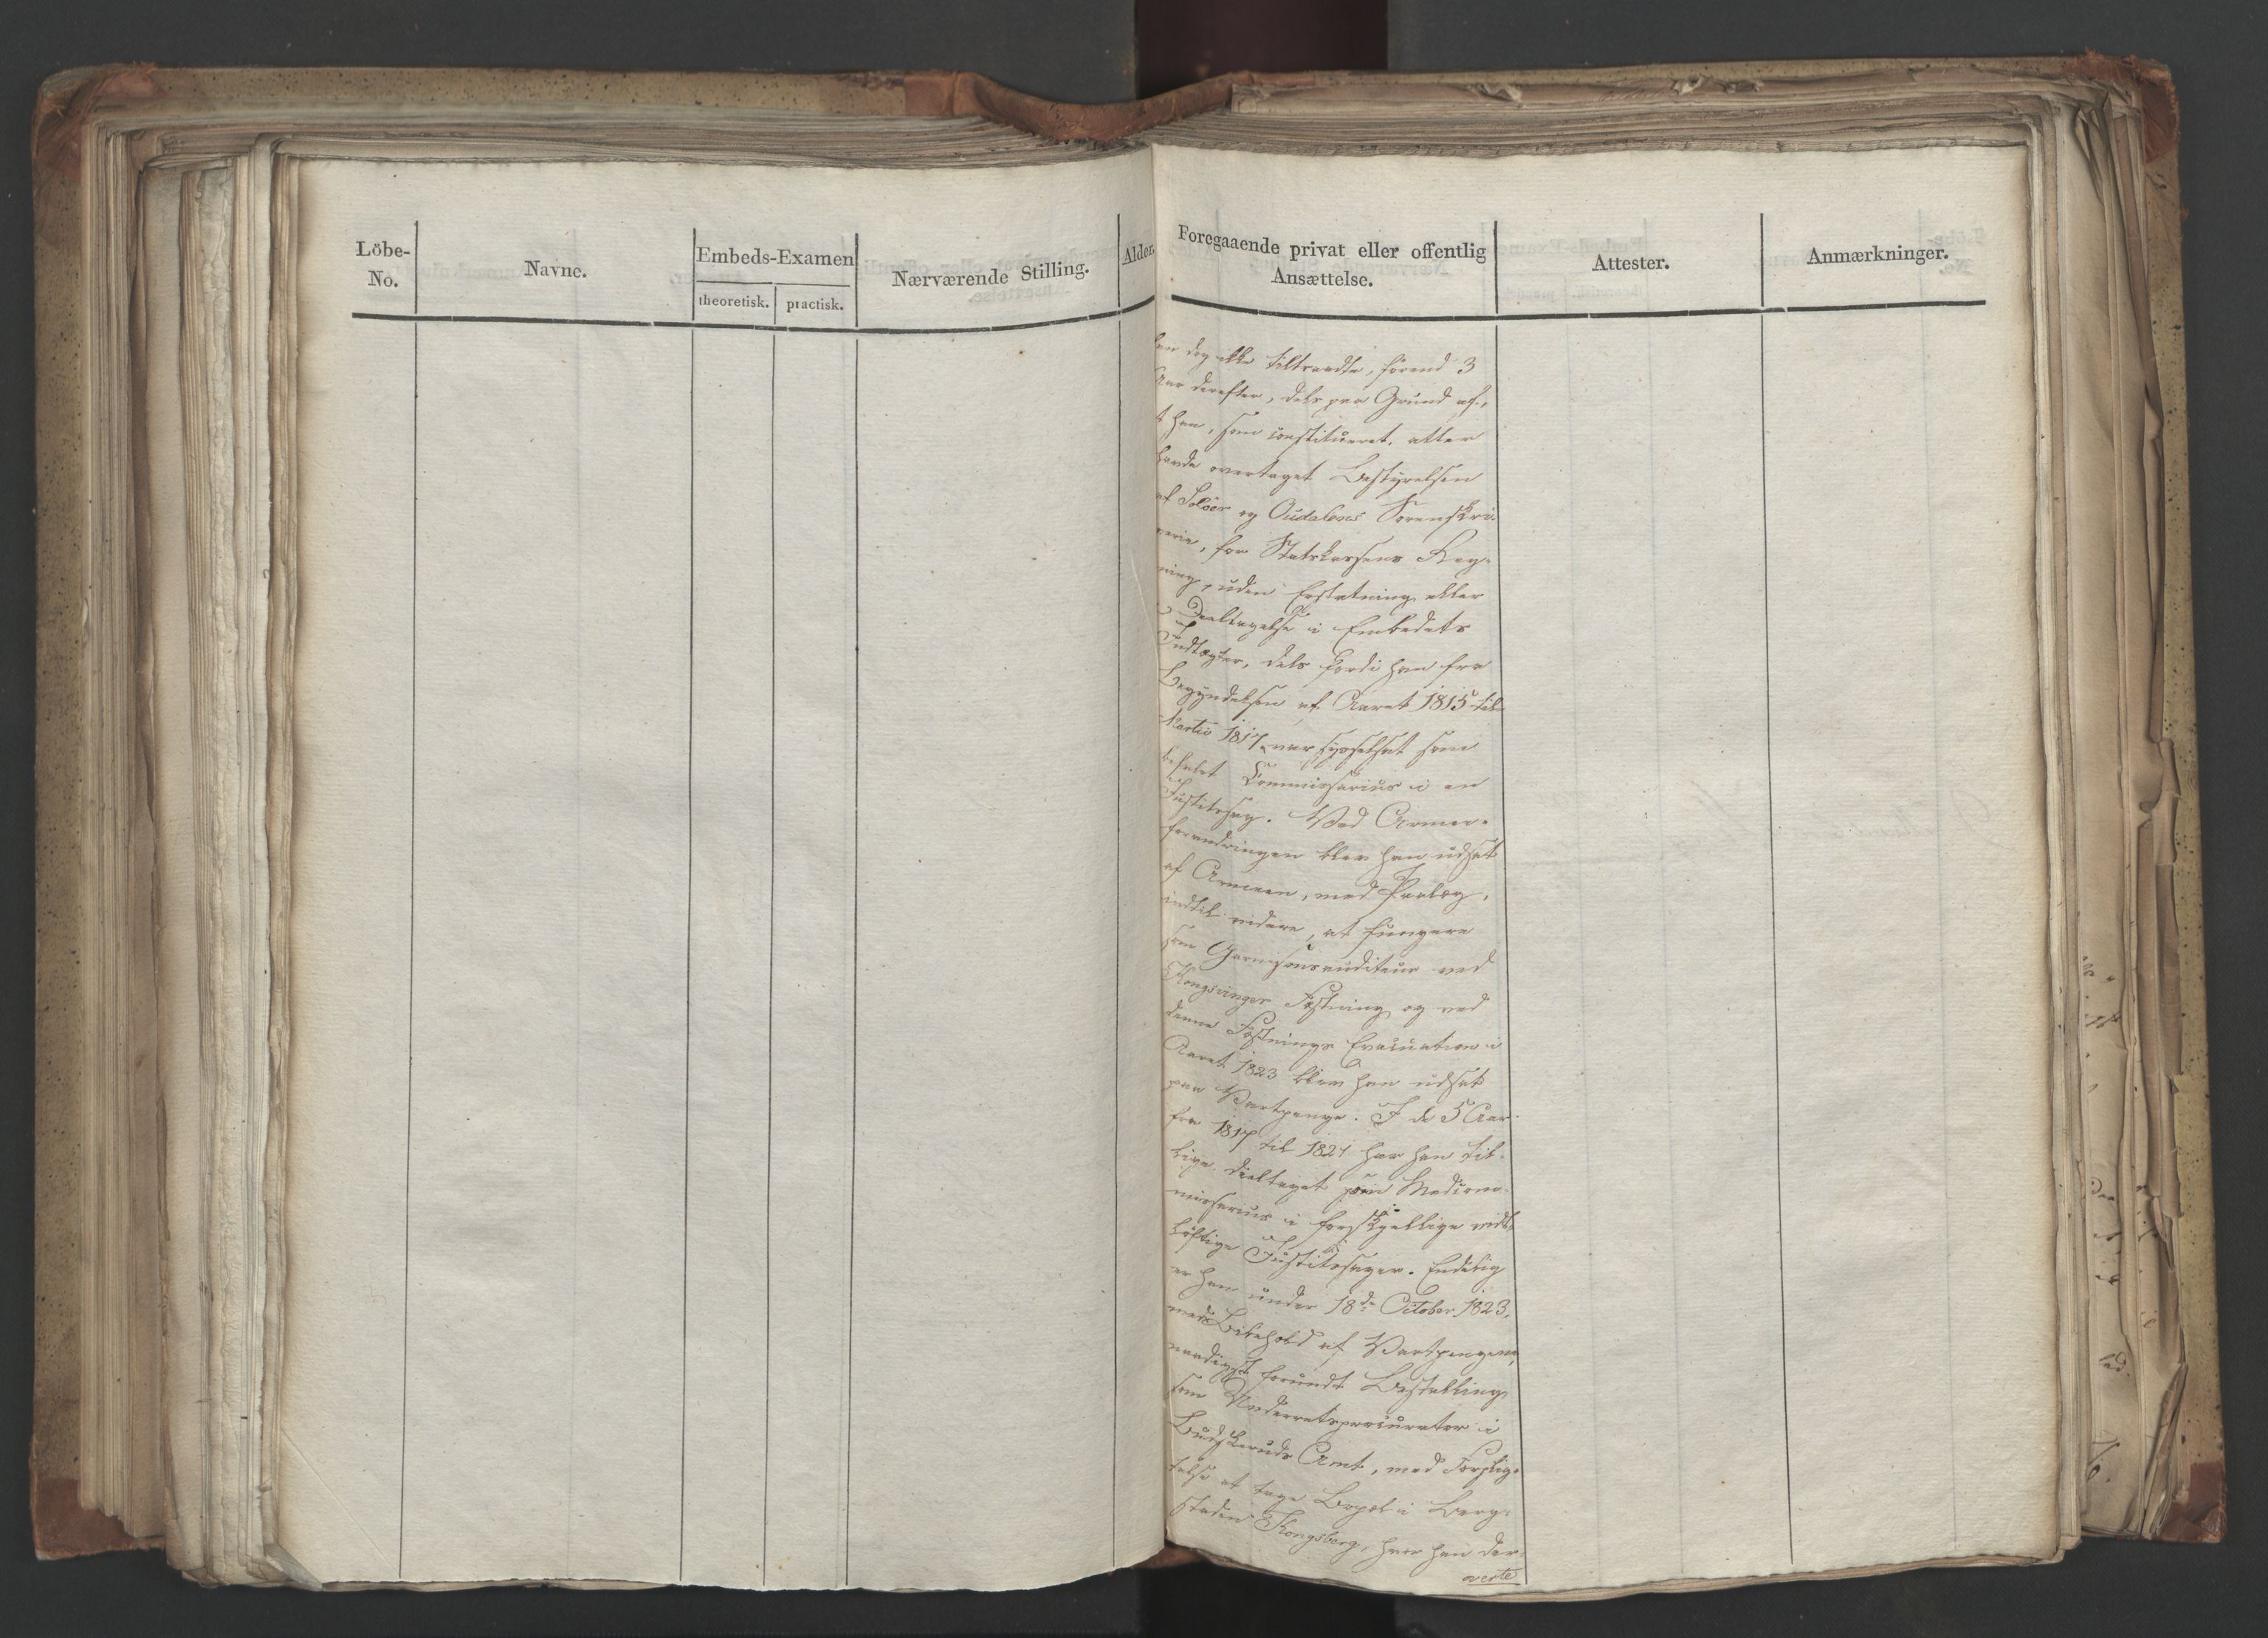 Löbe-
No.
Navne.
Embeds-Examen
theoretisk.
practisk.
Nærværende Stilling.
Alder.
Foregaaende privat eller offentlig
Ansættelse.
Attester.
Anmærkninger.
han dog ikke tiltraadte, förend 3
Aar derefter, dels paa Grund af,
at han, som constitueret, atter
havde overtaget Bestyrelsen
af Soløer og Oudalens Sorenskri-
verie, for Statskassens Reg-
ning, uden Erstatning eller
Deeltagelse i Embedets
Indtægter, dels fordi han fra
Begyndelsen af Aaret 1815 til
Martii 1817 var sysselsat som
befalet Commissarius i en
Justitssag. Ved Armee-
forandringen blev han udsat
af Armeen, med Paalæg,
indtil videre, at fungere
som Garnisonsauditeur ved
Kongsvinger Fæstning og ved
denne Fæstnings Evacuation i
Aaret 1823 blev han udsat
paa Vartpenge. I de 5 Aar
fra 1817 til 1821 har han til-
lige deeltaget som Medcom-
missarius i forskjellige vidt-
løftige Justitssager. Endelig
er han under 18de October 1823,
med Bibehold af Vartpengene,
naadigst forundt Bestalling
som Underretsprocurator i
Budskeruds Amt, med Forplig-
telse at tage Bopæl i Berg-
staden Kongsberg, hvor han der-
verte